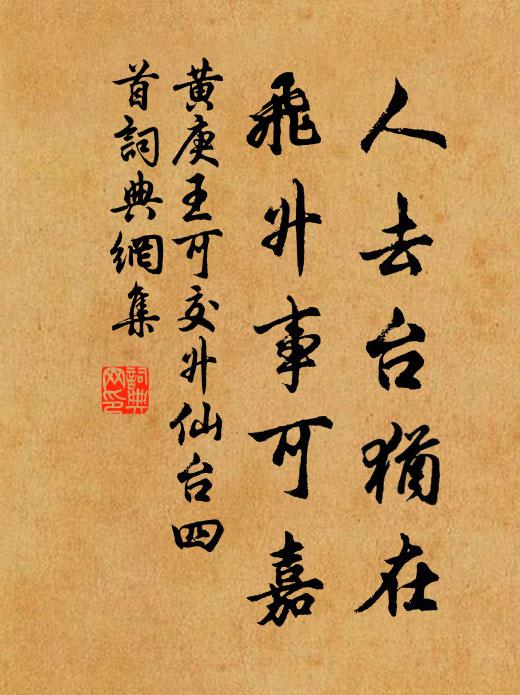 人去台猶在
飛升事可嘉
黄庚王可交升仙台四
首詞典網集
詞典
网印